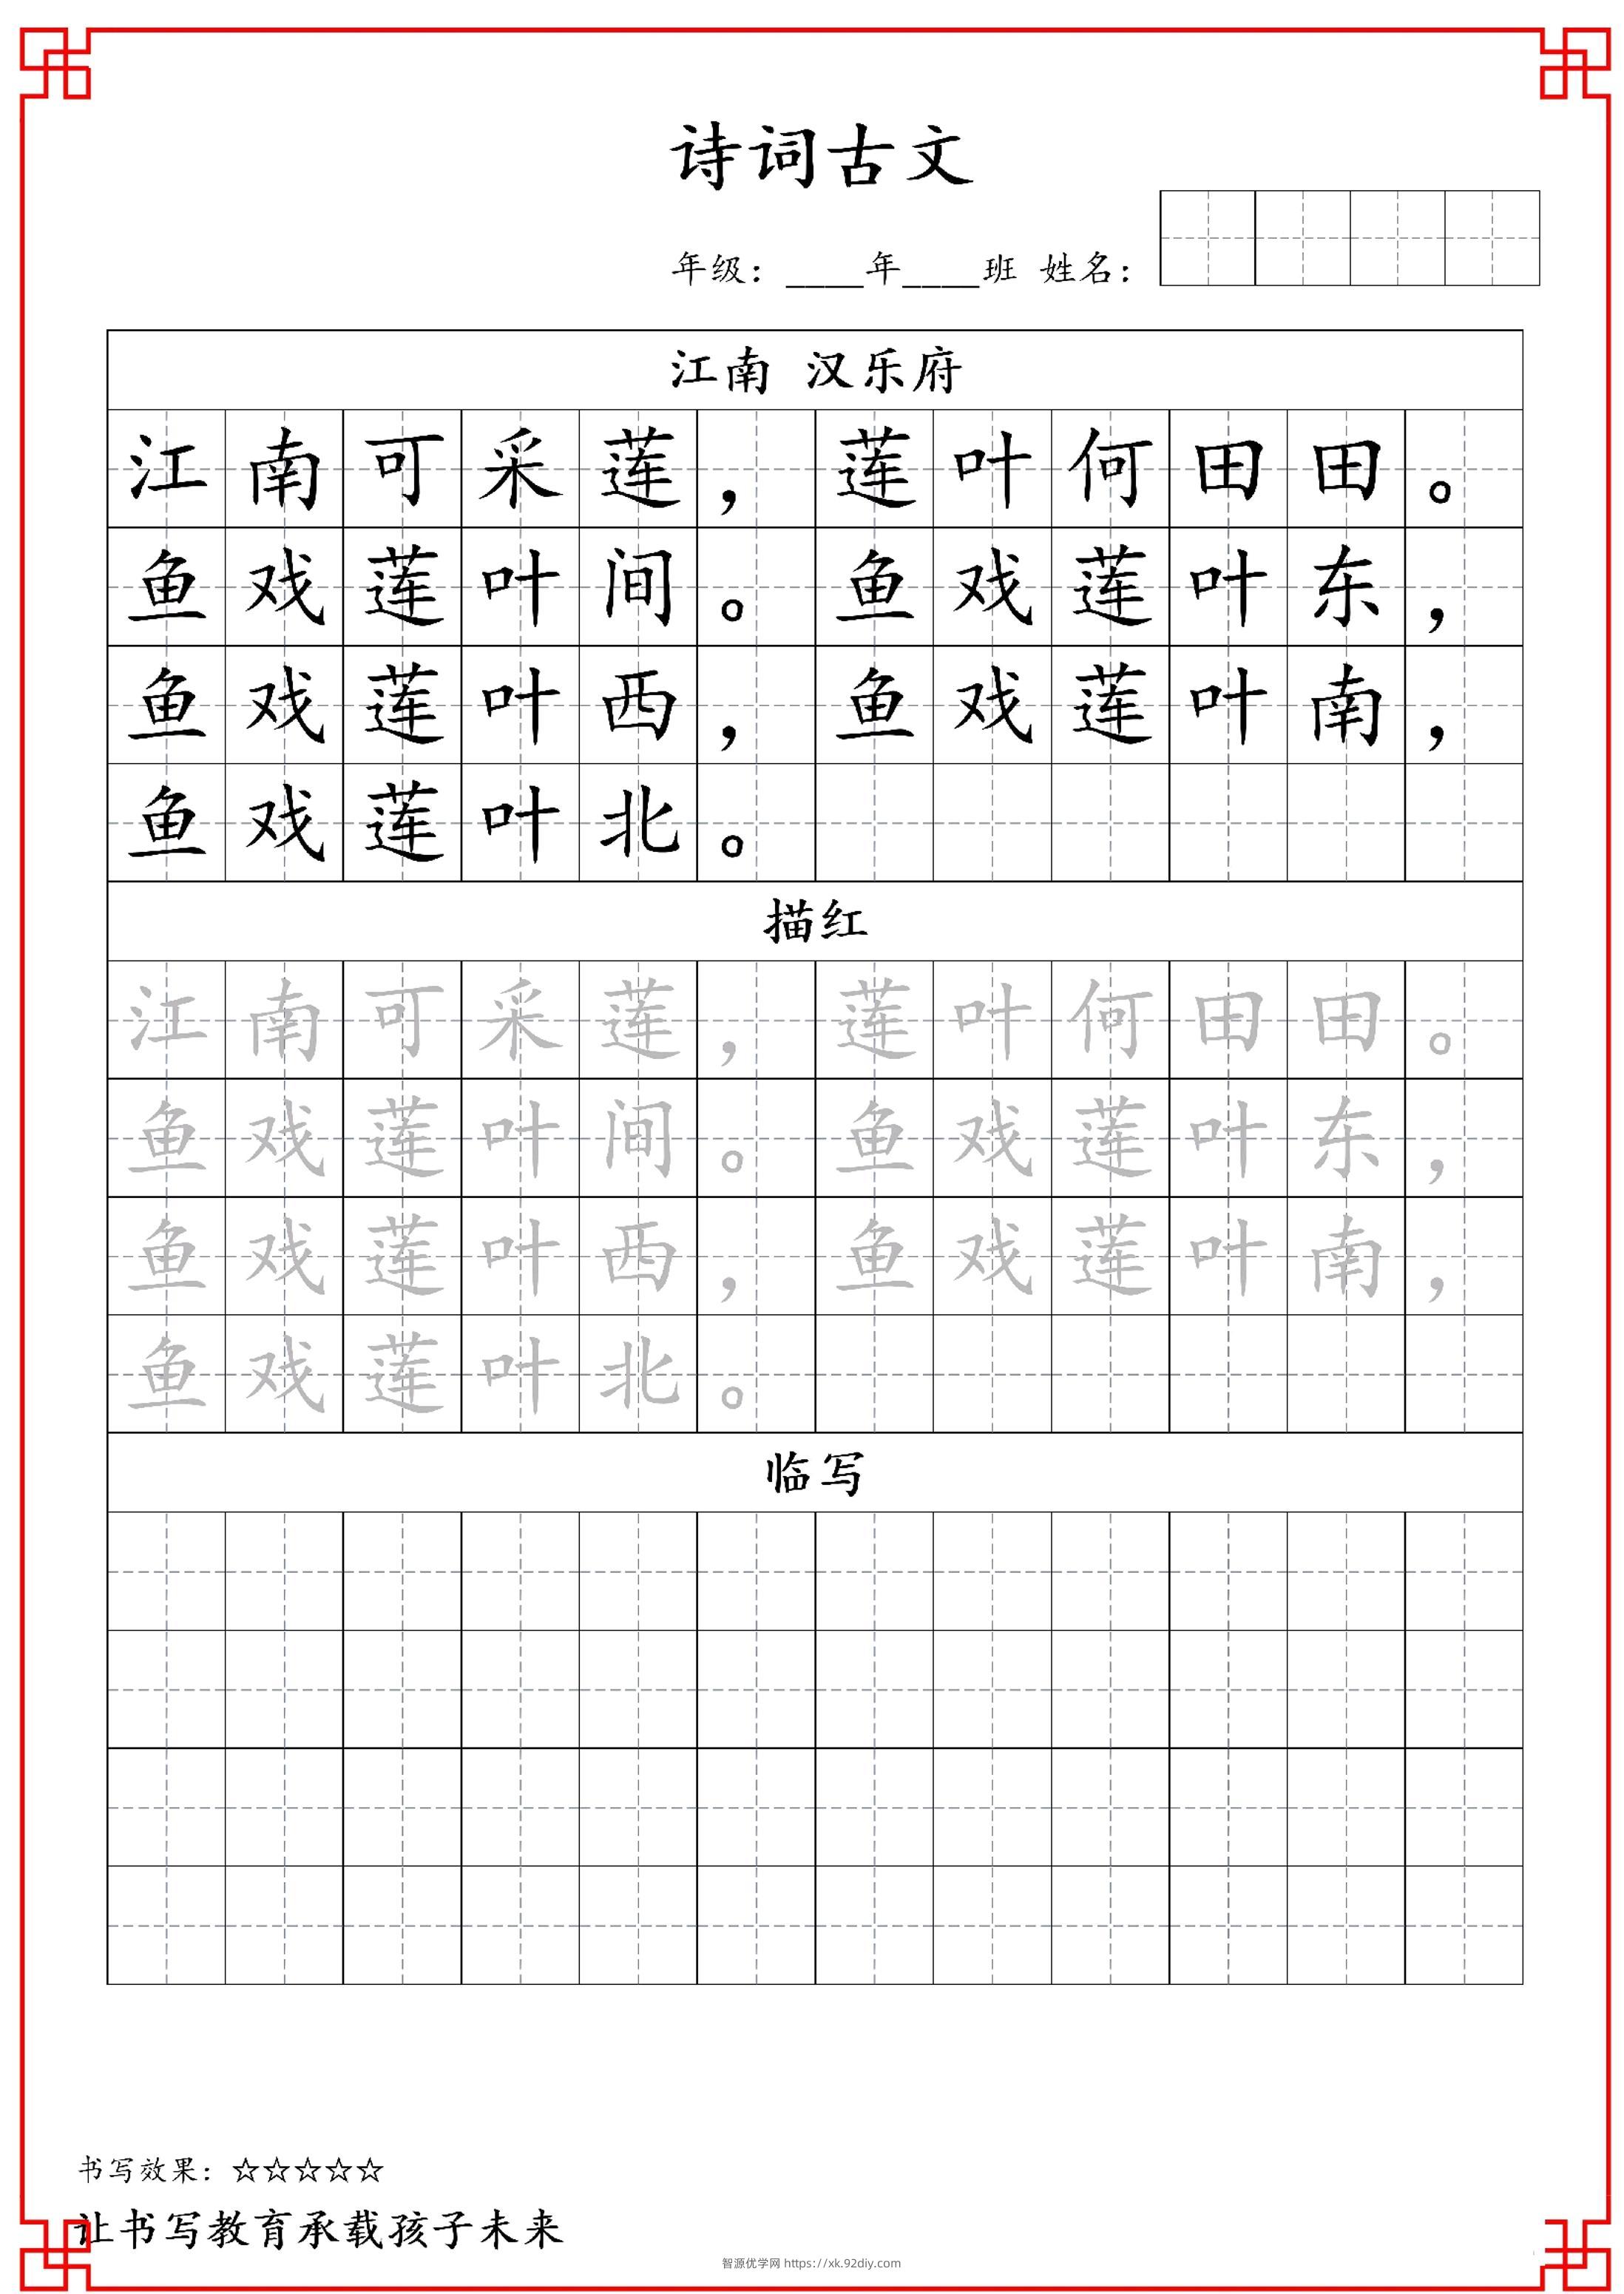 诗词古文
年级：____年____班 姓名：
江南 汉乐府
江南可采莲，莲叶何田田。
鱼戏莲叶间。鱼戏莲叶东，
鱼戏莲叶西，鱼戏莲叶南，
鱼戏莲叶北。
描红
江南可采莲，莲叶何田田。
鱼戏莲叶间。鱼戏莲叶东，
鱼戏莲叶西，鱼戏莲叶南，
鱼戏莲叶北。
临写
书写效果：☆☆☆☆☆
让书写教育承载孩子未来
智源优学网 https://xk.92diy.com